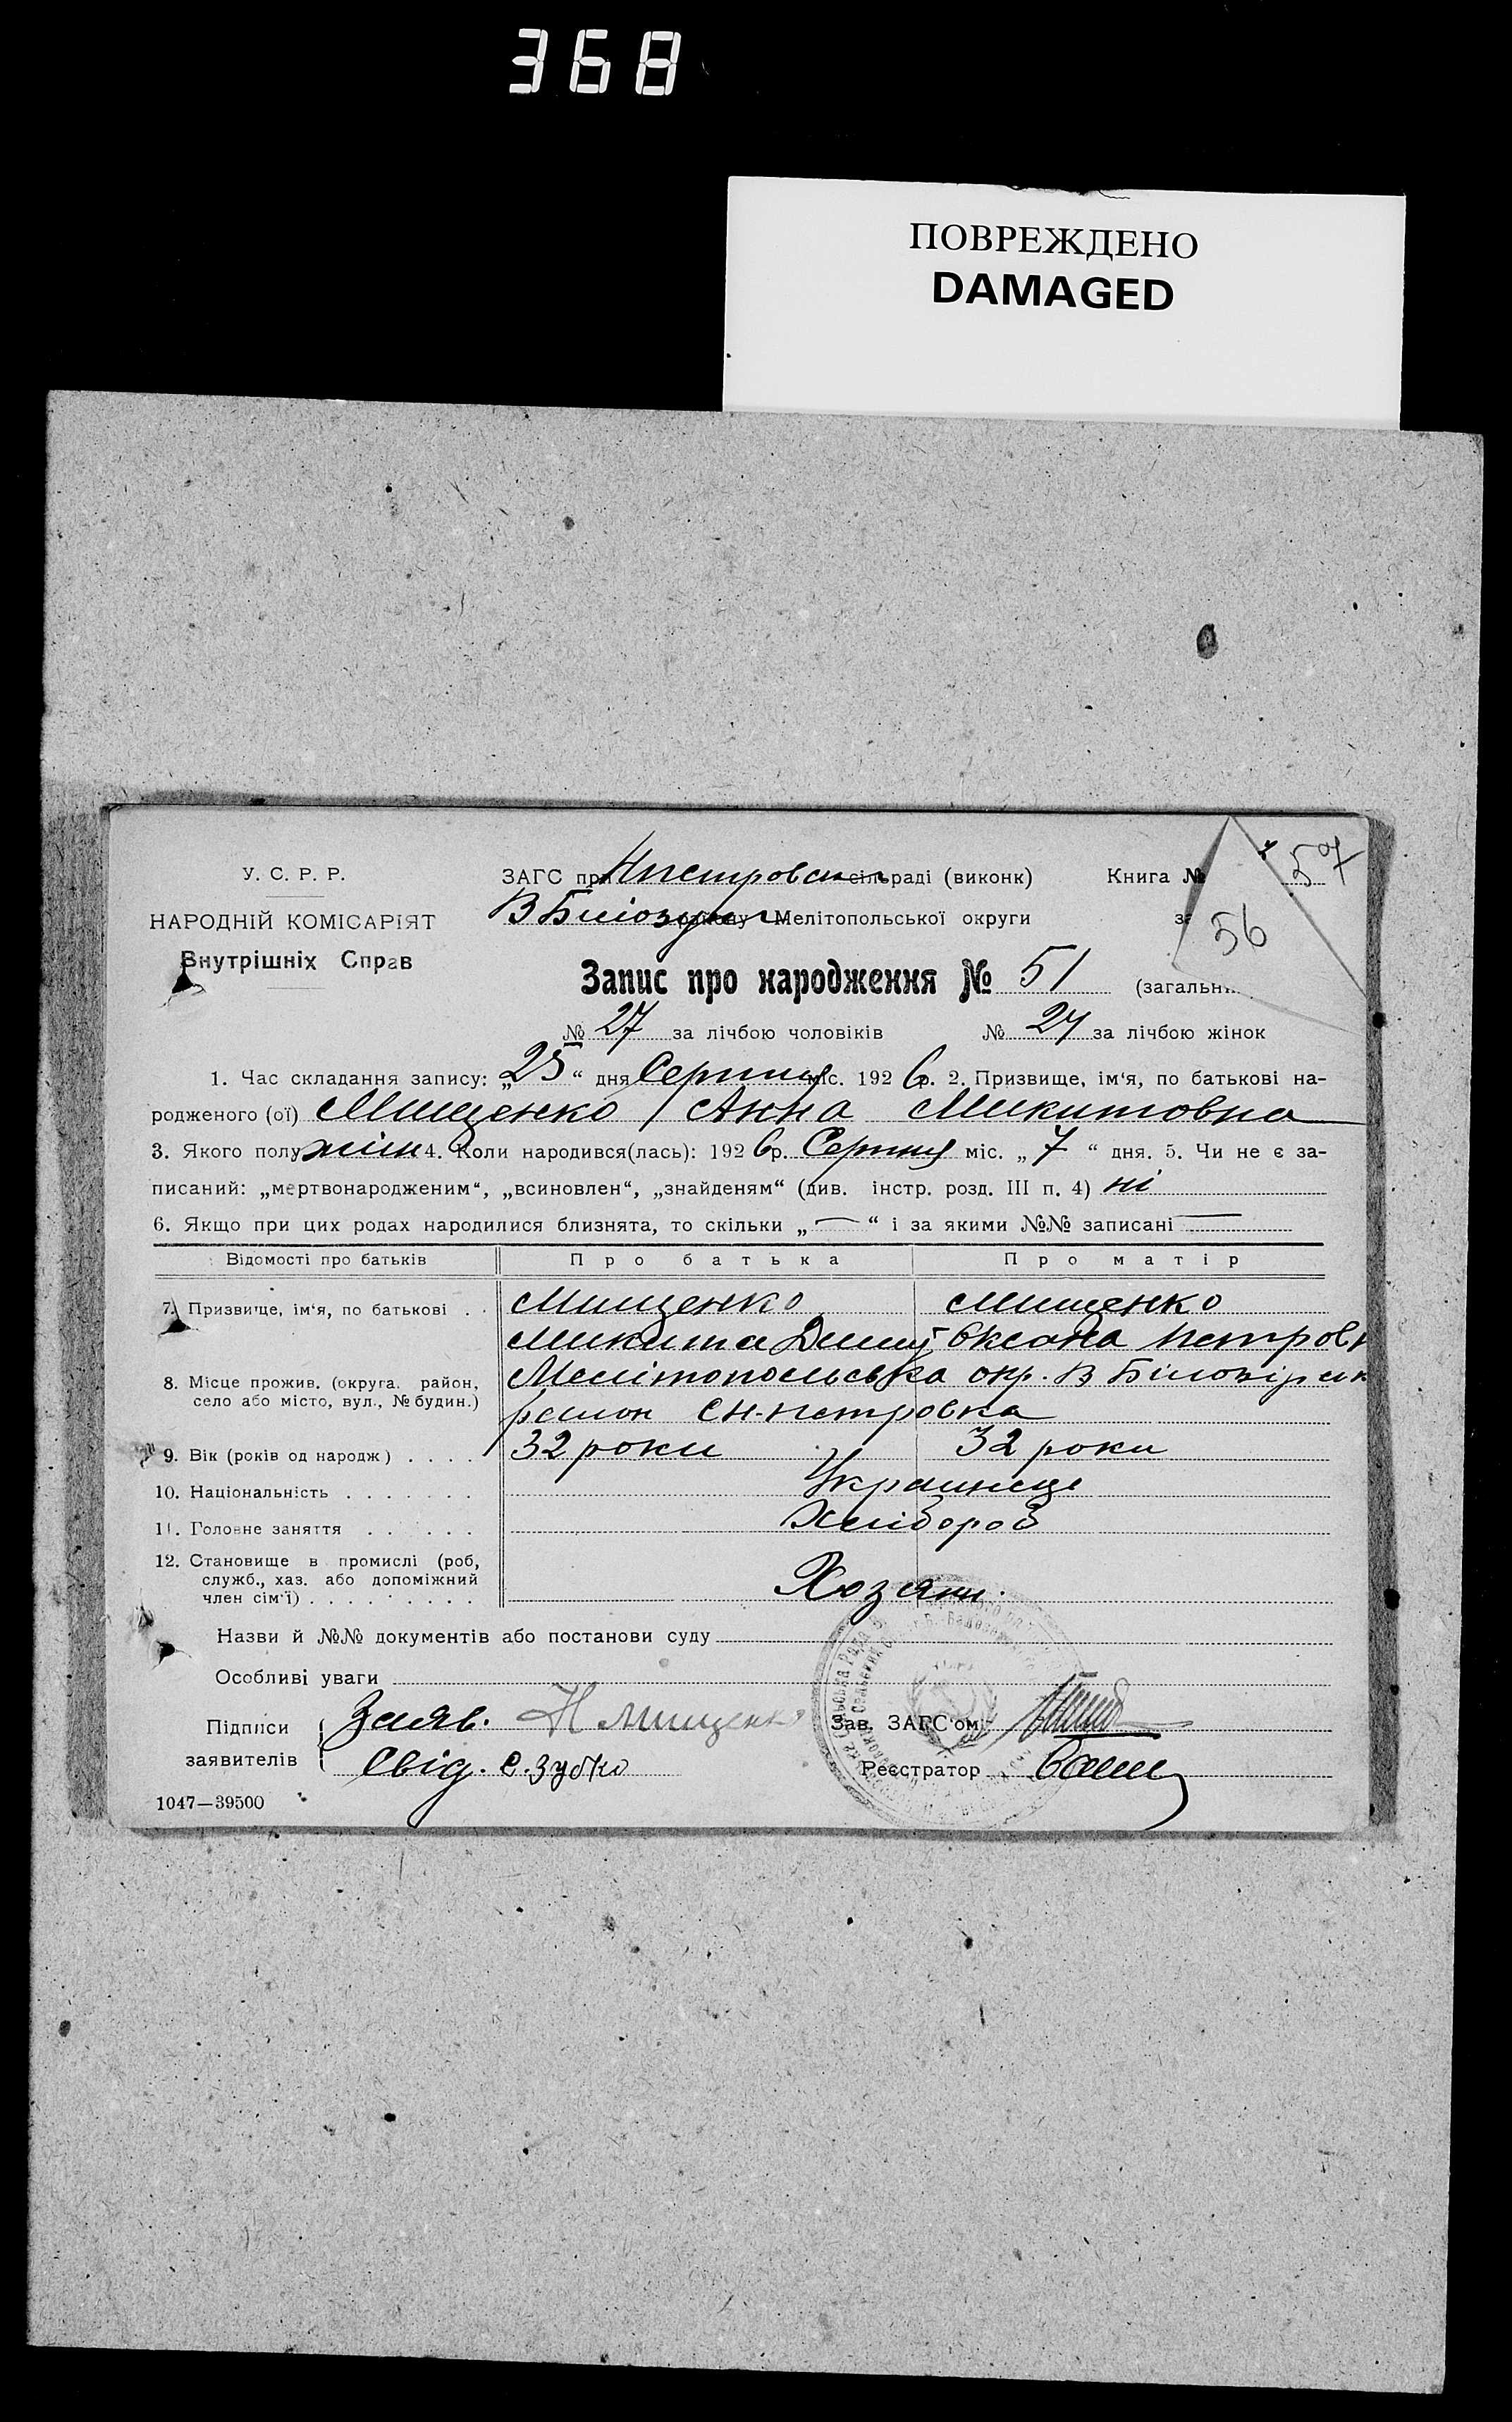 368
ПОВРЕЖДЕНО
DAMAGED
57
У. С. Р. Р.
ЗАГС при Нпетровськ сільраді (виконк) Книга №
НАРОДНІЙ КОМІСАРІЯТ
В Білозір району Мелітопольської округи за
56
Внутрішніх Справ
Запис про народження № 51 (загальн
№ 27 за лічбою чоловіків № 24 за лічбою жінок
1. Час складання запису: „25“ дня Серпня міс. 1926 р. 2. Призвище, ім'я, по батькові на-
родженого (ої) Мищенко Анна Микитовна
3. Якого полу жін 4. Коли народився(лась): 1926 р. Серпня міс. „7“ дня. 5. Чи не є за-
писаний: „мертвонародженим“, „всиновлен“, „знайденям“ (див. інстр. розд. III п. 4) ні
6. Якщо при цих родах народилися близнята, то скільки „—“ і за якими №№ записані —
Відомості про батьків Про батька Про матір
7. Призвище, ім'я, по батькові . . Мищенко Мищенко
Микита Оксана Петровн
8. Місце прожив. (округа, район, Мелітопольська окр. В Білозірськ
село або місто, вул., № будин.) район Н-петровка
9. Вік (років од народж) . . . . 32 роки 32 роки
10. Національність . . . . . . . Украинце
11. Головне заняття . . . . . . Хлібороб
12. Становище в промислі (роб,
служб., хаз. або допоміжний
член сім'ї) . . . . . . . . . Хозяин.
Назви й №№ документів або постанови суду
Особливі уваги
Підписи Заяв. Н Мищенко Зав. ЗАГС'ом
заявителів Свід. С. Зубко Реєстратор
1047—39500